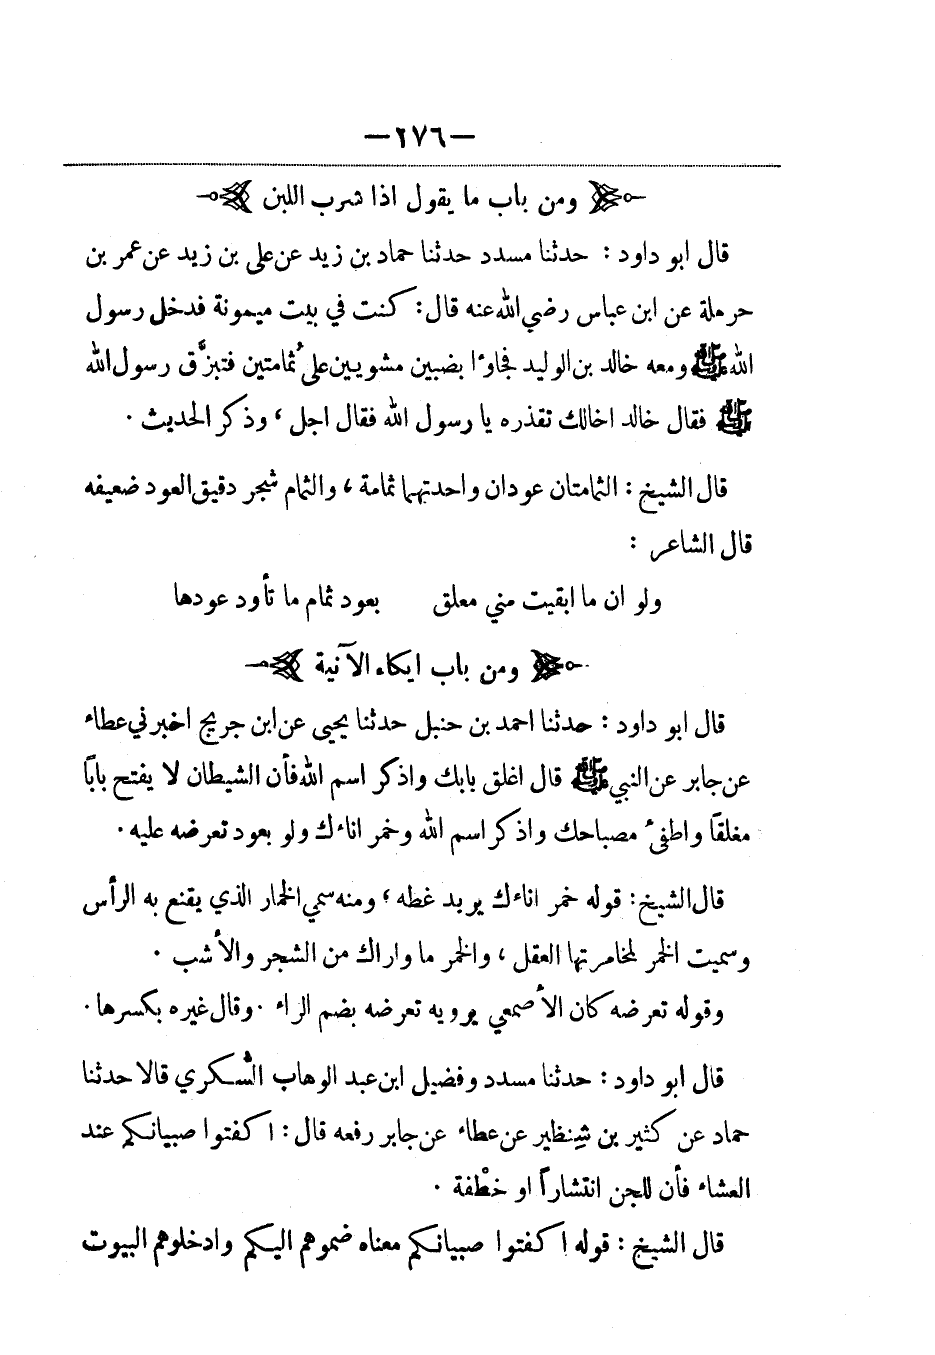 —٢٧٦—
ومن باب ما يقول اذا شرب اللبن
قال ابو داود : حدثنا مسدد حدثنا حماد بن زيد عن علي بن زيد عن عمر بن
حرملة عن ابن عباس رضي الله عنه قال : كنت في بيت ميمونة فدخل رسول
الله ﷺ ومعه خالد بن الوليد فجاؤا بضبين مشويين على ثُمامتين فتبزَّق رسول الله
ﷺ فقال خالد اخالك تقذره يا رسول الله فقال اجل ، وذكر الحديث .
قال الشيخ : الثمامتان عودان واحدتهما ثمامة ، والثمام شجر دقيق العود ضعيفه
قال الشاعر :
ولو ان ما ابقيت مني معلق بعود ثمام ما تأود عودها
ومن باب ايكاء الآنية
قال ابو داود : حدثنا احمد بن حنبل حدثنا يحيى عن ابن جريج اخبرني عطاء
عن جابر عن النبي ﷺ قال اغلق بابك واذكر اسم الله فأن الشيطان لا يفتح بابًا
مغلقًا واطفئ مصباحك واذكر اسم الله وخمر اناءك ولو بعود تعرضه عليه .
قال الشيخ : قوله خمر اناءك يريد غطه ، ومنه سمي الخمار الذي يقنع به الرأس
وسميت الخمر لمخامرتها العقل ، والخمر ما واراك من الشجر والأشب .
وقوله تعرضه كان الأصمعي يرويه تعرضه بضم الراء . وقال غيره بكسرها .
قال ابو داود : حدثنا مسدد وفضيل ابن عبد الوهاب السُّكري قالا حدثنا
حماد عن كثير بن شِنظير عن عطاء عن جابر رفعه قال : اكفتوا صبيانكم عند
العشاء فأن للجن انتشاراً او خطْفة .
قال الشيخ : قوله اكفتوا صبيانكم معناه ضموهم اليكم وادخلوهم البيوت